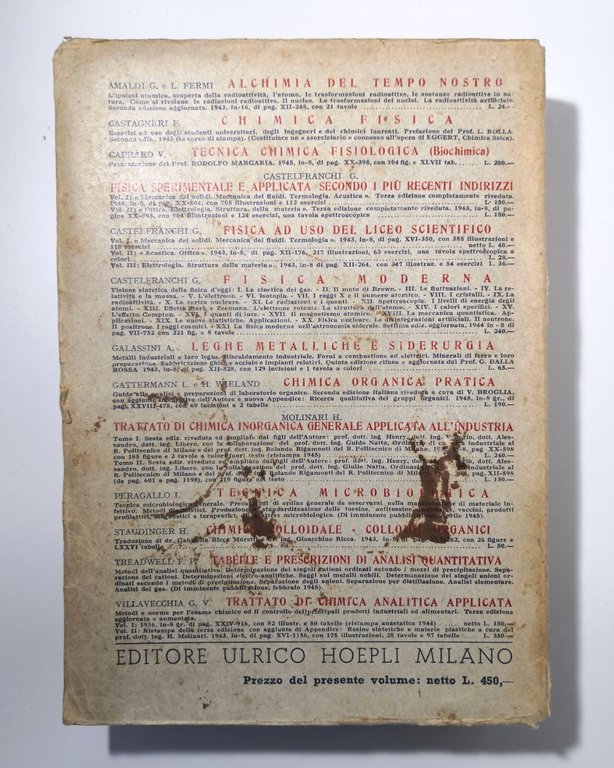 AMALDI G. e L. FERMI ALCHIMIA DEL TEMPO NOSTRO
L'ipotesi atomica, scoperta della radioattività, l'atomo, le trasformazioni radioattive, le sostanze radioattive in na-
tura. Come si rivelano le radiazioni radioattive. Il nucleo. Le trasformazioni dei nuclei. La radioattività artificiale.
Seconda edizione aggiornata. 1943, in-16, di pag. XII-248, con 21 tavole L. 24.—
CASTAGNERI E. CHIMICA FISICA
Esercizi ad uso degli studenti universitari, degli ingegneri e dei chimici laureati. Prefazione del Prof. L. ROLLA
Seconda ediz., 1945 (in corso di stampa). (Costituisce un « eserciziario » connesso all'opera di EGGERT, Chimica fisica).
CAPRARO V. TECNICA CHIMICA FISIOLOGICA (Biochimica)
Presentazione del Prof. RODOLFO MARGARIA. 1945, in-8, di pag. XX-398, con 104 fig. e XLVII tab. L. 200.—
CASTELFRANCHI G.
FISICA SPERIMENTALE E APPLICATA SECONDO I PIÙ RECENTI INDIRIZZI
Vol. I: « Meccanica dei solidi. Meccanica dei fluidi. Termologia. Acustica ». Terza edizione completamente riveduta.
in-8, di pag. con 705 illustrazioni e 112 esercizi L. 150.—
Vol. II: « Ottica. Elettrologia. Struttura della materia ». Terza edizione completamente riveduta. 1943, in-8, di pa-
gine XX-898, con 904 illustrazioni e 124 esercizi, una tavola spettroscopica L. 180.—
CASTELFRANCHI G. FISICA AD USO DEL LICEO SCIENTIFICO
Vol. I. « Meccanica dei solidi. Meccanica dei fluidi. Termologia ». 1943, in-8, di pag. XVI-350, con 388 illustrazioni e
118 esercizi netto L. 40.—
Vol. II: « Acustica. Ottica ». 1943, in-8, di pag. XII-176, 217 illustrazioni, 63 esercizi, una tavola spettroscopica a
colori L. 28.—
Vol. III: Elettrologia. Struttura della materia ». 1943, in-8, di pag. XII-264, con 347 illustraz. e 54 esercizi L. 36.—
CASTELFRANCHI G. FISICA MODERNA
Visione sintetica della fisica d'oggi: I. La cinetica dei gas. - II. Il moto di Brown. - III. Le fluttuazioni. - IV. La re-
latività e la massa. - V. L'elettrone. - VI. Isotopia. - VII. I raggi X e il numero atomico. - VIII. I cristalli. - IX. La
radioattività. - X. La carica nucleare. - XI. Le radiazioni e i quanti. - XII. Spettroscopia. I livelli di energia degli
atomi. - XIII. Effetti Stark e Zeeman. L'elettrone rotante. La struttura dell'atomo. - XIV. I calori specifici. - XV.
L'effetto Compton. - XVI. I quanti di luce. - XVII. Il magnetismo atomico. - XVIII. La meccanica quantistica. Ap-
plicazioni. - XIX. Le nuove statistiche. Applicazioni. - XX. Fisica nucleare. Le disintegrazioni artificiali. Il neutrone.
Il positrone. I raggi cosmici. - XXI. La fisica moderna nell'astronomia siderale. Settima ediz. aggiornata, 1944 in-8 di
pag. VII-752 con 221 fig. e 8 tavole L. 240.—
GALASSINI A. LEGHE METALLICHE E SIDERURGIA
Metalli industriali e loro leghe. Riscaldamento industriale. Forni a combustione ed elettrici. Minerali di ferro e loro
preparazione. Fabbricazione ghisa e acciaio e impianti relativi. Quinta edizione rifusa e aggiornata dal Prof. G. DALLA
ROSSA 1943, in-8, di pag. XII-328, con 129 incisioni e 1 tavola a colori L. 65.—
GATTERMANN L. e H. WIELAND CHIMICA ORGANICA PRATICA
Guida alle analisi e preparazioni di laboratorio organico. Seconda edizione italiana riveduta a cura di V. BROGLIA,
con aggiunte dell'Autore e nuova Appendice: Ricerca qualitativa dei gruppi organici. 1945, in-8 gr., di
pag. XXVIII-478, con 60 incisioni a 2 tabelle L. 190.—
MOLINARI H.
TRATTATO DI CHIMICA INORGANICA GENERALE APPLICATA ALL'INDUSTRIA
Tomo I. Sesta ediz. riveduta ed ampliata dai figli dell'Autore: prof. dott. ing. Henry, dott. ing. Vittorio, dott. Ales-
sandro, dott. ing. Libero, con la collaboraz. del prof. dott. ing. Guido Natta, Ordinario di ca industriale al
R. Politecnico di Milano e del prof. dott. ing. Rolando Rigamonti del R. Politecnico di Milano. di pag. XX-598
con 185 figure e 2 tavole a colori, e testo (ristampa 1945) L. 240.—
Tomo II. Sesta ediz. riveduta ed ampliata dai figli dell'Autore: prof. dott. ing. Henry, dott. ing. Vittorio, dott. Ales-
sandro, dott. ing. Libero, con la collaboraz. del prof. dott. ing. Giulio Natta, Ordinario industriale al
R. Politecnico di Milano e del prof. dott. ing. Rolando Rigamonti del R. Politecnico di Milano. in-8, di pag. XII-598
(da pag. 601 a pag. 1198), con 119 figure nel testo L. 130.—
PERAGALLO I. TECNICA MICROBIOLOGICA
Tecnica microbiologica generale. Precauzioni di ordine generale da osservarsi nella manipolazione di materiale in-
fettivo. Metodi diagnostici. Produzione e standardizzazione delle tossine, antitossine vaccini, prodotti
profilattici, diagnostici e terapeutici, di origine microbiologica. (Di imminente pubblicazione, aprile 1945).
STAUDINGER H. CHIMICA COLLOIDALE - COLLOIDI ORGANICI
Traduzione di dr. Gabriella Ricca Moretti e ing. Gioacchino Ricca. 1943, in-8 262, con 26 figure e
LXXVI tabelle L. 80.—
TREADWELL F. P. TABELLE E PRESCRIZIONI DI ANALISI QUANTITATIVA
Metodi dell'analisi quantitativa. Determinazione dei singoli cationi ordinati secondo i mezzi di precipitazione. Sepa-
razione dei cationi. Determinazioni elettro-analitiche. Saggi sui metalli nobili. Determinazione dei singoli anioni or-
dinati secondo i metodi di precipitazione. Separazione degli anioni. Separazione per distillazione. Analisi elementare.
Analisi dei gas. (Di imminente pubblicazione; febbraio 1945).
VILLAVECCHIA G. V. TRATTATO DI CHIMICA ANALITICA APPLICATA
Metodi e norme per l'esame chimico ed il controllo dei principali prodotti industriali ed alimentari. Terza edizione
aggiornata e aumentata.
Vol. I: 1936, in-8 gr. di pag. XXIV-916, con 82 illustr. e 50 tabelle (ristampa anastatica 1944) netto L. 180.—
Vol. II: Ristampa della terza edizione con aggiunta di Appendice: Resine sintetiche e materie plastiche a cura del
prof. dott. ing. H. Molinari. 1943, in-8, di pag. XVI-1156, con 175 illustrazioni, 25 tavole e 97 tabelle. L. 350.—
EDITORE ULRICO HOEPLI MILANO
Prezzo del presente volume: netto L. 450,—